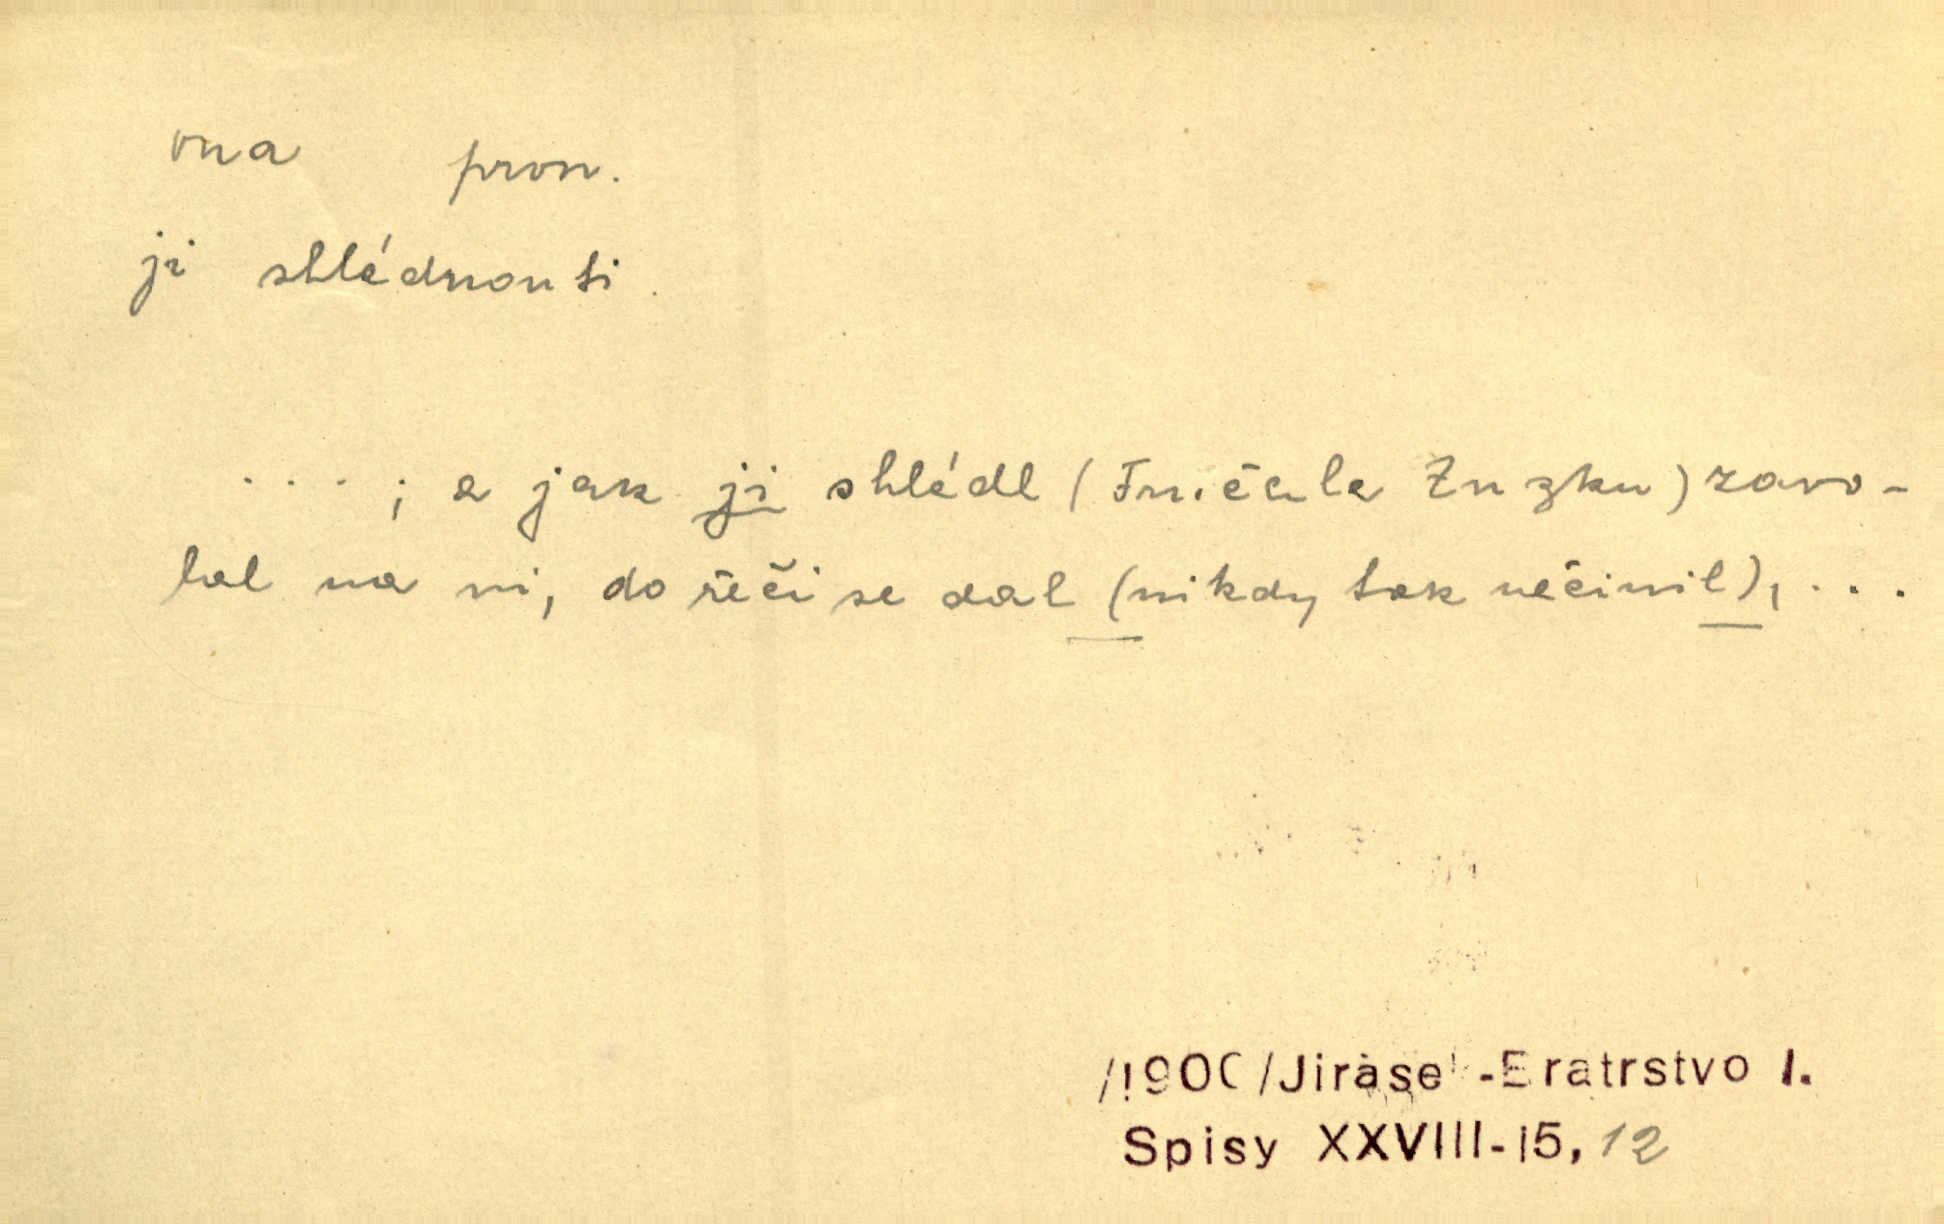 ona pron.
ji shlédnouti
. . . ; a jak ji shlédl ( Zuzku) zavo-
lal na ni, do řeči se dal (nikdy tak nečinil), . . .
/1900/Jirásek-Bratrstvo I.
Spisy XXVIII-15, 12